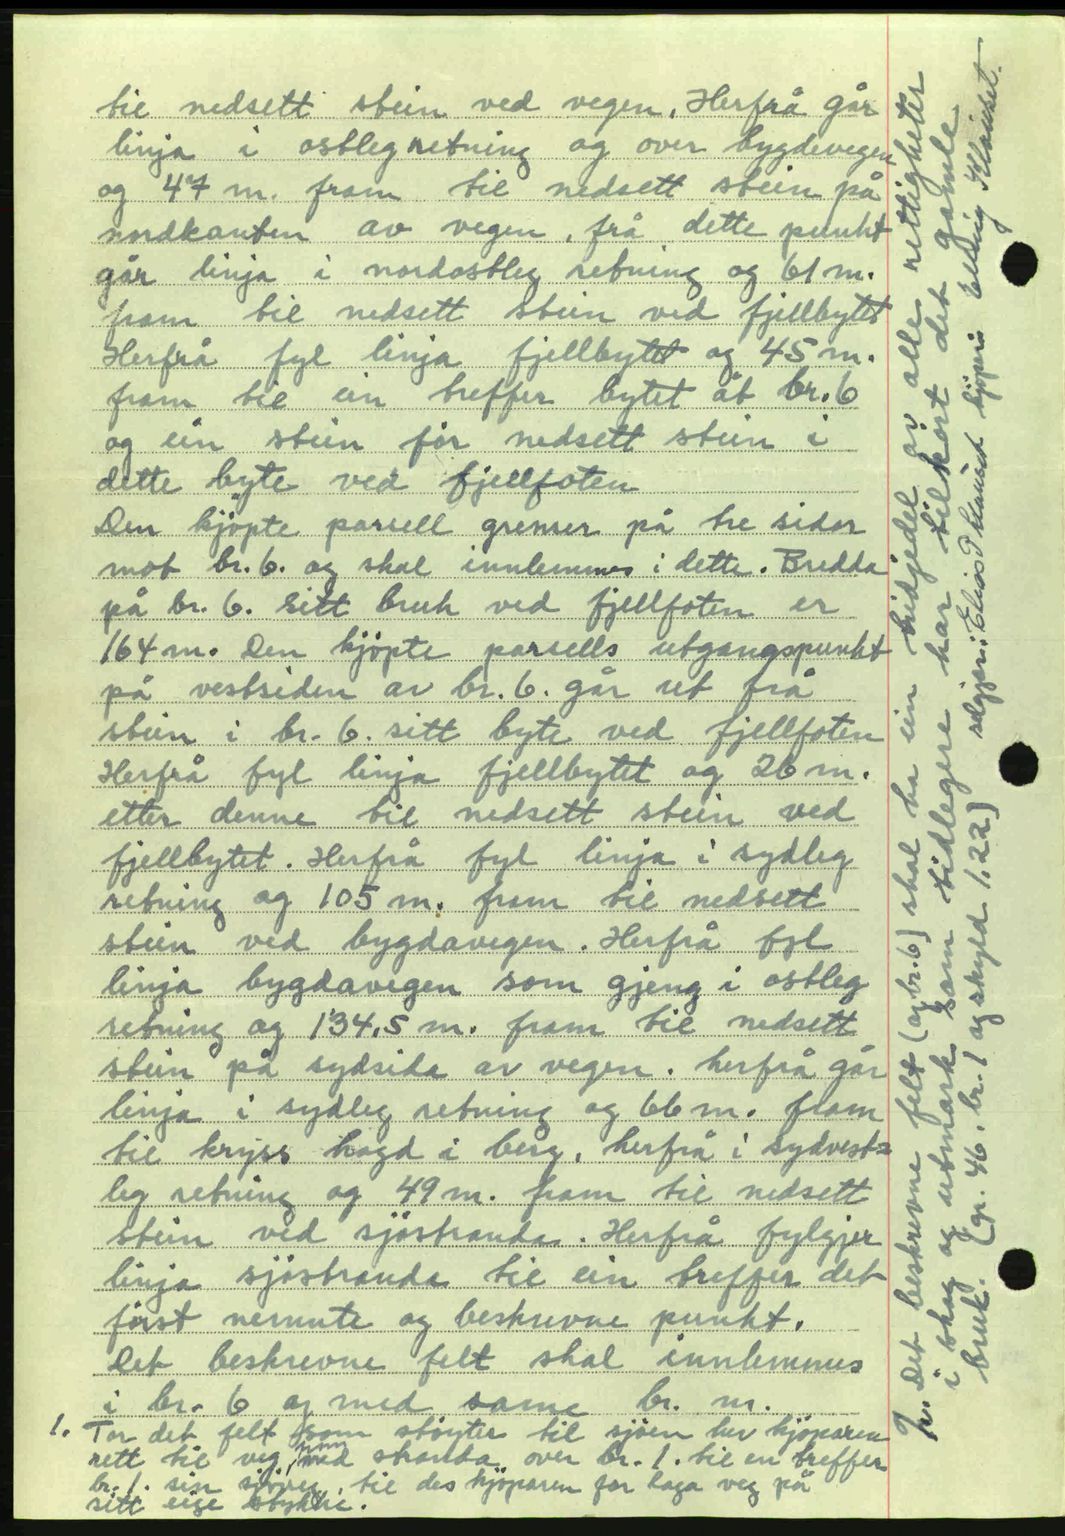 til nedsett stein ved vegen. Herfrå går
linja i ostleg retning og over bygdevegen
og 47 m. fram til nedsett stein på
nordkanten av vegen, frå dette punkt
går linja i nordostleg retning og 61 m.
fram til nedsett stein ved fjellbytet
Herfrå fyl linja fjellbytet og 45 m.
fram til ein treffer bytet åt br. 6
og ein stein før nedsett stein i
dette byte ved fjellfoten
Den kjöpte parsell grenser på tre sider
mot br. 6. og skal innlemmes i dette. Bredda
på br. 6. sitt bruk ved fjellfoten er
164 m. Den kjöpte parsells utgangspunkt
på vestsiden av br. 6. går ut frå
stein i br. 6. sitt byte ved fjellfoten
Herfrå fyl linja fjellbytet og 26 m.
etter denne til nedsett stein ved
fjellbytet. Herfrå fyl linja i sydleg
retning og 105 m. fram til nedsett
stein ved bygdavegen. Herfrå fyl
linja bygdavegen som gjeng i ostleg
retning og 134,5 m. fram til nedsett
stein på sydsida av vegen. herfrå går
linja i sydleg retning og 66 m. fram
til kryss hogd i berg, herfrå i sydvest=
leg retning og 49 m. fram til nedsett
stein ved sjöstranda. Herfrå fylgjer
linja sjöstranda til ein treffer det
först nemnte og beskrevne punkt.
Det beskrevne felt skal innlemmes
i br. 6 og med same br. nr.
1. For det felt som stöyter til sjöen har kjöparen
rett til veg ned stranda over br. 1. til en treffer
br. 1. sin sjöveg, til des kjöparen får laga veg på
sitt eige stykke.
2. Det beskrevne felt (og br. 6) skal ha ein tridjedel av alle rettigheter
i skog og utmark som tidlegere har tilhört det gamle
bruk. (gr. 46. br. 1 og skyld 1.22)
selgjer: Elias P Klauset kjöpar: Elling Klauset.